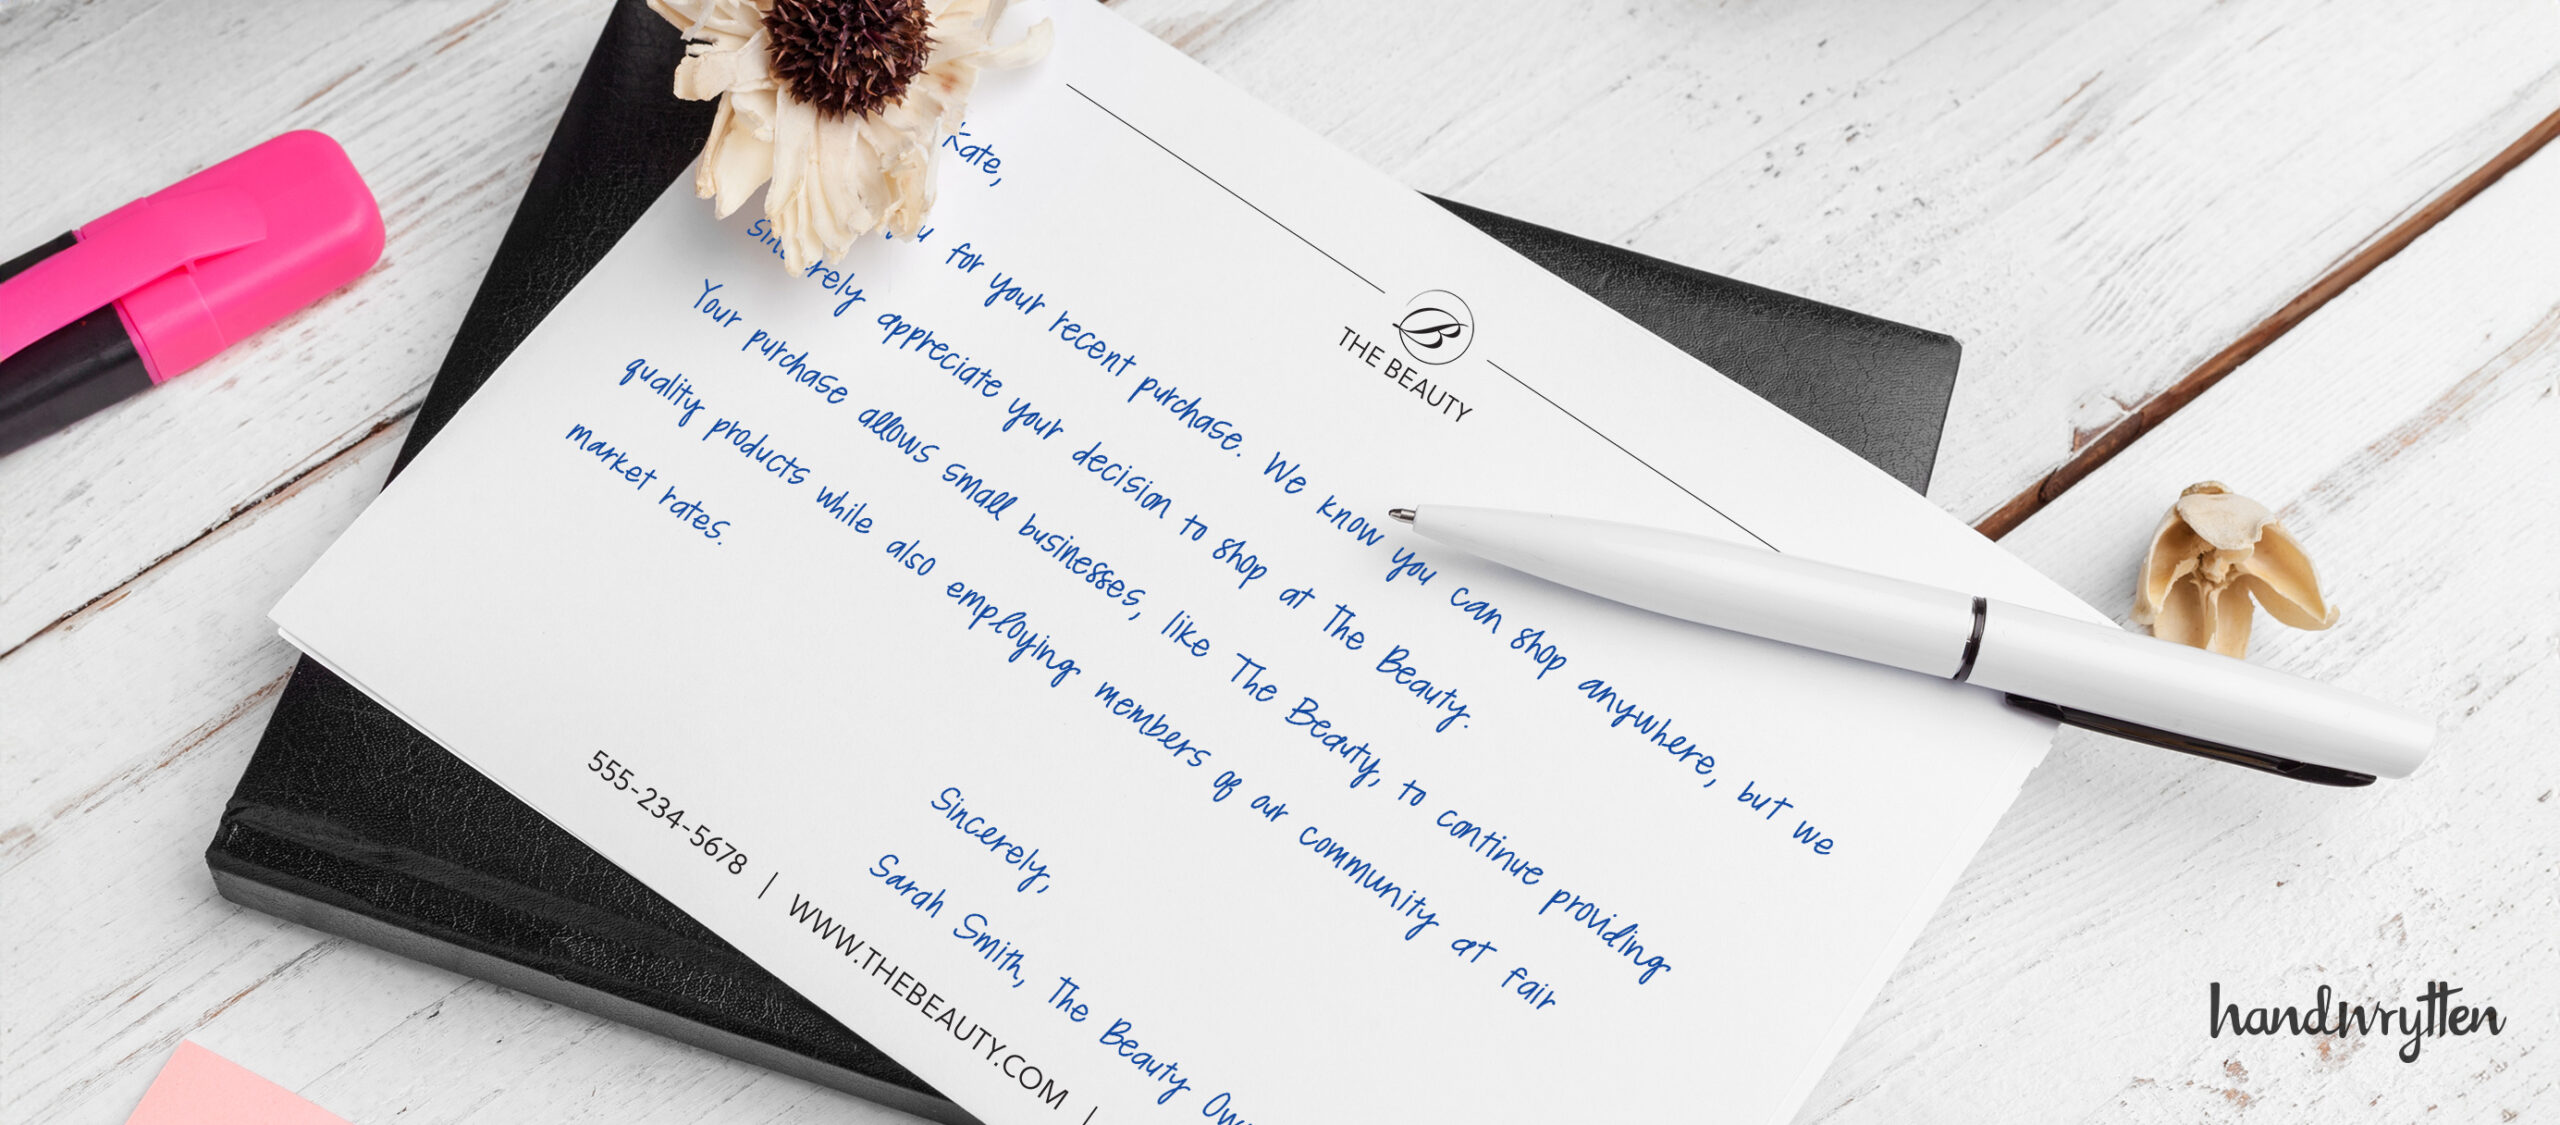 THE BEAUTY
Kate,
for your recent purchase. We know you can shop anywhere, but we
sincerely appreciate your decision to shop at The Beauty.
Your purchase allows small businesses, like The Beauty, to continue providing
quality products while also employing members of our community at fair
market rates.
Sincerely,
Sarah Smith, The Beauty
555-234-5678 | WWW.THEBEAUTY.COM |
handwrytten